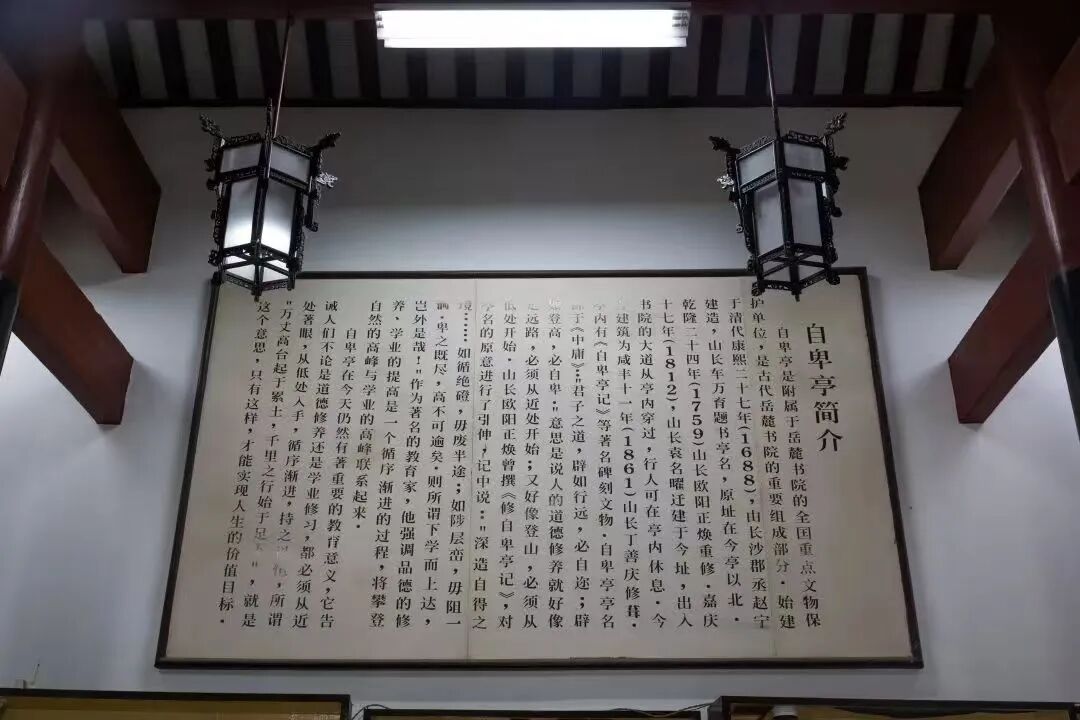 自卑亭简介
自卑亭是附属于岳麓书院的全国重点文物保
护单位，是古代岳麓书院的重要组成部分．始建
于清代康熙二十七年(1688)，由长沙郡丞赵宁
建造，山长车万育题书亭名，原址在今亭以北．
乾隆二十四年(1759)山长欧阳正焕重修．嘉庆
十七年(1812)，山长袁名曜迁建于今址，出入
书院的大道从亭内穿过，行人可在亭内休息．今
建筑为咸丰十一年(1861)山长丁善庆修葺．
亭内有《自卑亭记》等著名碑刻文物．自卑亭亭名
源于《中庸》："君子之道，辟如行远，必自迩；辟
如登高，必自卑"意思是说人的道德修养就好像
走远路，必须从近处开始；又好像登山，必须从
低处开始．山长欧阳正焕曾撰《修自卑亭记》，对
亭名的原意进行了引伸，记中说："深造自得之
境……如循绝磴，毋废半途；如陟层峦，毋阻一
．卑之既尽，高不可逾矣．则所谓下学而上达，
岂外是哉！"作为著名的教育家，他强调品德的修
养、学业的提高是一个循序渐进的过程，将攀登
自然的高峰与学业的高峰联系起来．
自卑亭在今天仍然有著重要的教育意义，它告
诫人们不论是道德修养还是学业修习，都必须从近
处著眼，从低处入手，循序渐进，持之以恒，所谓
"万丈高台起于累土，千里之行始于足下"，就是
这个意思，只有这样，才能实现人生的价值目标．